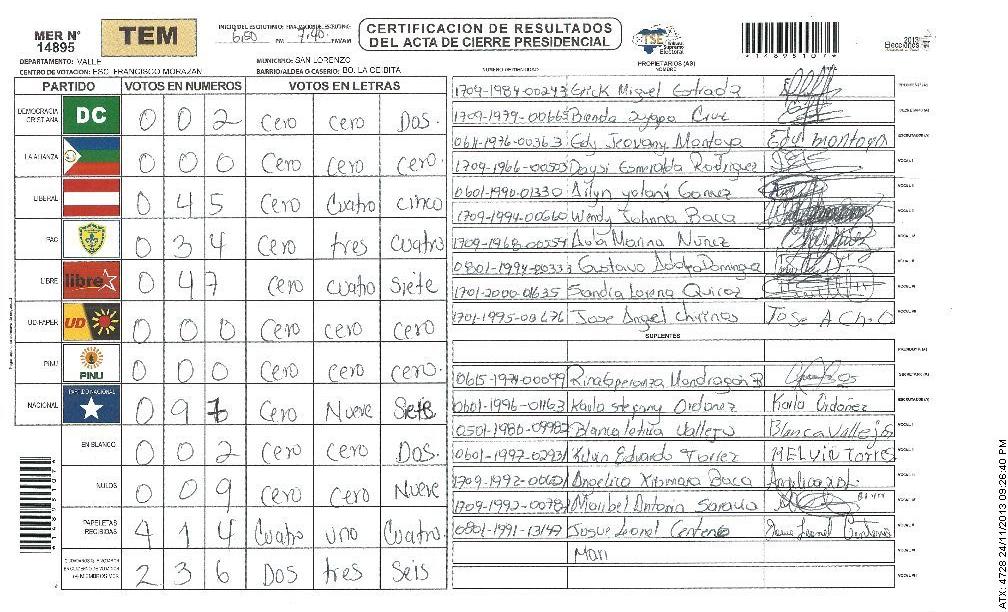 MER Nº
14895
TEM
INICIO DEL ESCRUTINIO:
6:50 PM 7:40 PM/AM
CERTIFICACION DE RESULTADOS
DEL ACTA DE CIERRE PRESIDENCIAL
TSE
Tribunal Supremo Electoral
2013
Elecciones
*14895107*
DEPARTAMENTO: VALLE
MUNICIPIO: SAN LORENZO
CENTRO DE VOTACION: ESC. FRANCISCO MORAZAN
BARRIO/ALDEA O CASERIO: BO. LA CEIBITA
NUMERO DE IDENTIDAD
PROPIETARIOS (AS)
NOMBRE
PARTIDO VOTOS EN NUMEROS VOTOS EN LETRAS
DEMOCRACIA CRISTIANA DC 0 0 2 Cero Cero Dos.
LA ALIANZA 0 0 0 Cero Cero Cero.
LIBERAL 0 4 5 Cero Cuatro cinco
PAC 0 3 4 Cero tres Cuatro
LIBRE libre 0 4 7 Cero cuatro Siete
UD-FAPER UD 0 0 0 Cero cero Cero
PINU PINU 0 0 0 Cero cero cero.
NACIONAL PARTIDO NACIONAL 0 9 7 Cero Nueve Siete
EN BLANCO 0 0 2 Cero Cero Dos.
NULOS 0 0 9 Cero Cero Nueve
PAPELETAS RECIBIDAS 4 1 4 Cuatro uno Cuatro
2 3 6 Dos tres Seis
1709-1984-00243 Erick Miguel Estrada
1709-1979-00665 Brenda Cruz
0611-1976-00363 Edy Jeovany Montoya Edy Montoya
1709-1966-00503 Daysi Esmeralda Rodriguez
0601-1990-01330 Ailyn yolani Gomez
1709-1994-00660 Wendy Johnna Baca
1709-1968-00254 Ada Marina Nuñez
0801-1994-00333 Gustavo Adolfo Dominguez
1701-2000-01635 Sandra Lorena Quiroz
1701-1995-00676 Jose Angel Chirinos
SUPLENTES
0615-1971-00099 Mondragon
0601-1996-01163 Karla stefanny Ordoñez Karla Ordoñez
0501-1980-09982 Blanca letitia Vallejo Blanca Vallejo
0601-1997-02931 Kilvin Eduardo Torrez MELVIN Torres
1709-1992-00601 Angelica Xiomara Baca
1709-1992-00782 Maribel Antonia Saravia
0801-1991-13147 Josue Leonel Centeno Josue Leonel Centeno
Mari
*14895107*
ATX: 4728 24/11/2013 09:26:40 PM